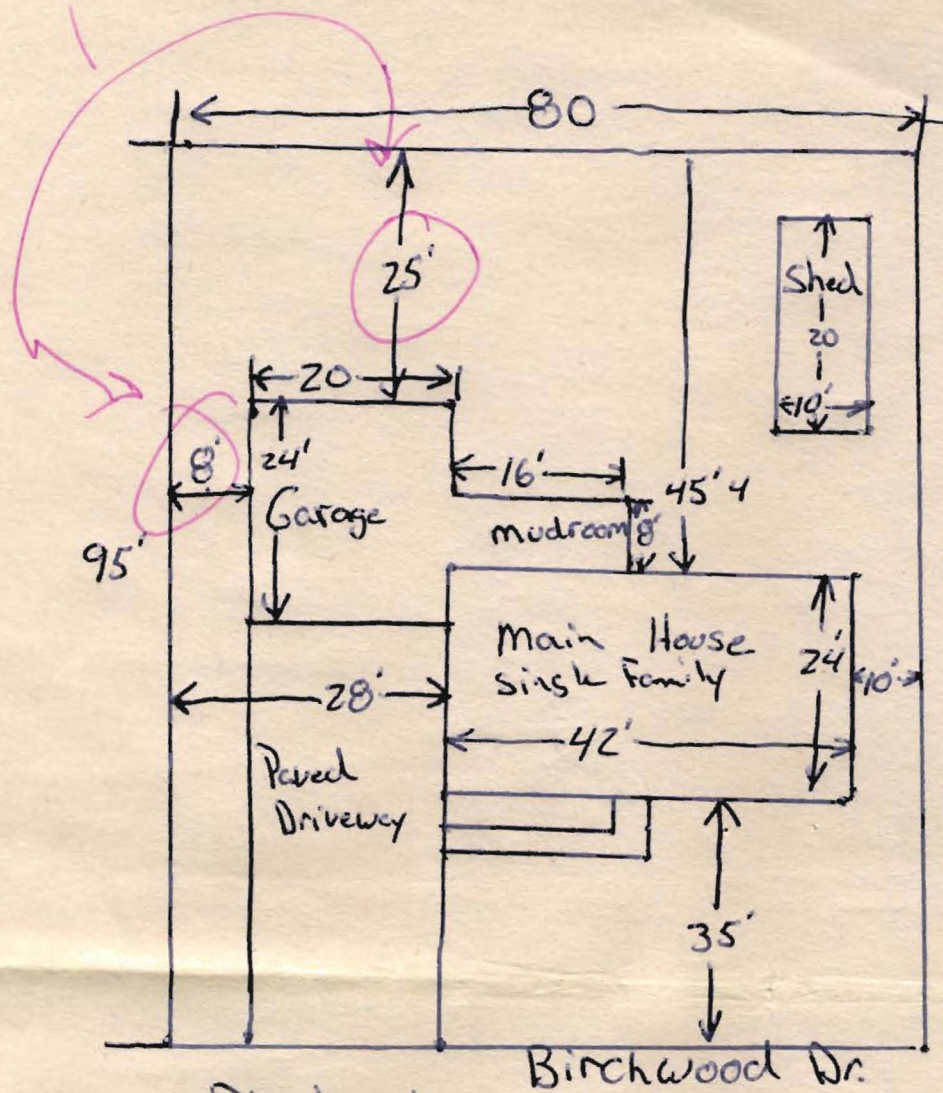 80
25'
Shed
20
10'
20
8'
24'
16'
45' 4
Garage
mudroom 8'
95'
Main House
single Family
24'
10'
28'
42'
Paved
Driveway
35'
Birchwood Dr.